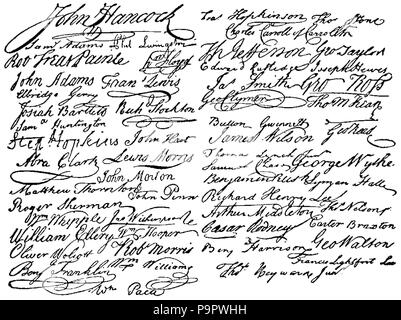 John Hancock
Saml Adams Phil Livingston
Rob Treat Paine
John Adams Fran Lewis
Elbridge Gerry
Josiah Bartlett Rich Stockton
Saml Huntington
Step Hopkins John Hart
Abra Clark Lewis Morris
John Morton
Matthew Thornton
John Penn
Roger Sherman
Wm Whipple Jno Witherspoon
William Ellery Wm Hooper
Oliver Wolcott Robt Morris
Benj Franklin Wm Williams
Wm Paca
Fras Hopkinson Thos Stone
Charles Carroll of Carrollton
Th Jefferson Geo Taylor
Edward Rutledge Joseph Hewes
Jas Smith Geo Ross
Geo Clymer Tho M Kean
Button Gwinnett
James Wilson Geo Read
Thomas Lynch Junr
Samuel Chase George Wythe
Benjamin Rush Lyman Hall
Richard Henry Lee
Arthur Middleton Ths Nelson
Caesar Rodney Carter Braxton
Benj Harrison Geo Walton
Francis Lightfoot Lee
Thos Heyward Junr
alamy stock photo
P9PWHH